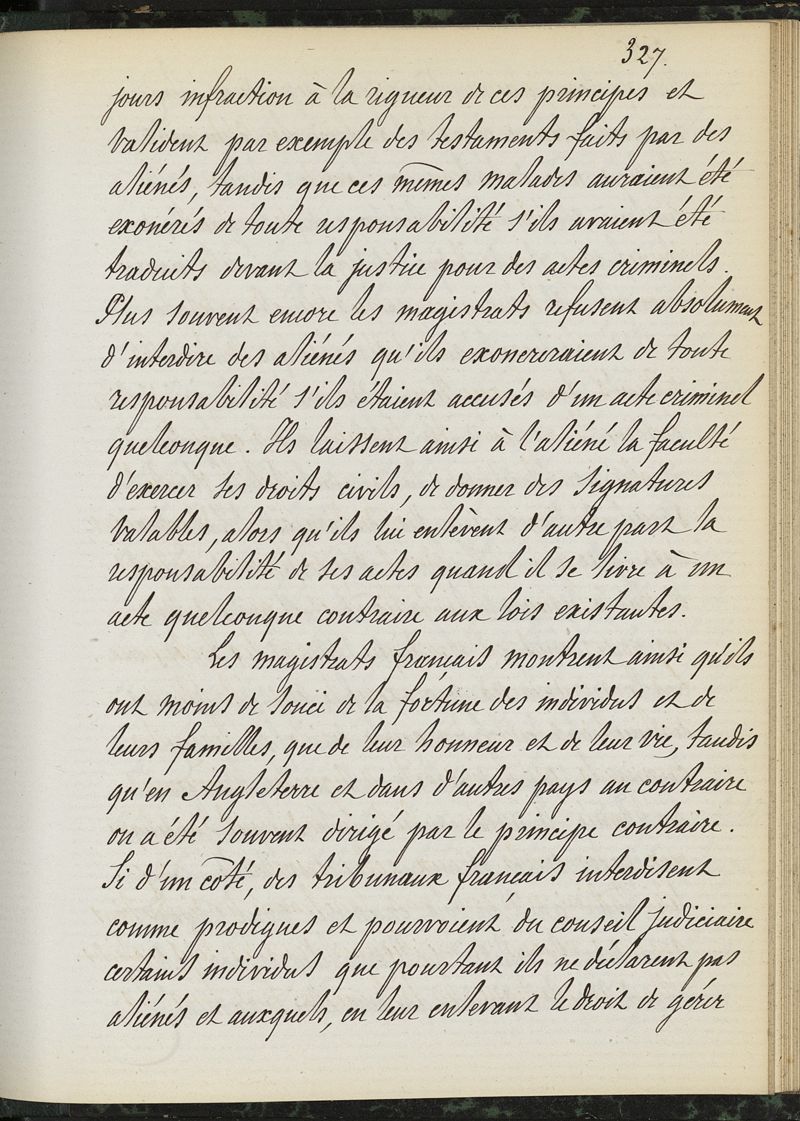 327.
jours infraction à la rigueur de ces principes et
valident par exemple des testaments faits par des
aliénés, tandis que ces mêmes malades auraient été
exonérés de toute responsabilité s'ils avaient été
traduits devant la justice pour des actes criminels.
Plus souvent encore les magistrats refusent absolument
d'interdire des aliénés qu'ils exonereraient de toute
responsabilité s'ils étaient accusés d'un acte criminel
quelconque. Ils laissent ainsi à l'aliéné la faculté
d'exercer ses droits civils, de donner des signatures
valables, alors qu'ils lui enlèvent d'autre part la
responsabilité de ses actes quand il se livre à un
acte quelconque contraire aux lois existantes.
Les magistrats français montrent ainsi qu'ils
ont moins de souci de la fortune des individus et de
leurs familles, que de leur honneur et de leur vie, tandis
qu'en Angleterre et dans d'autres pays au contraire
on a été souvent dirigé par le principe contraire.
Si d'un côté, des tribunaux français interdisent
comme prodigues et pourvoient du conseil judiciaire
certains individus que pourtant ils ne déclarent pas
aliénés et auxquels, en leur enlevant le droit de gérer